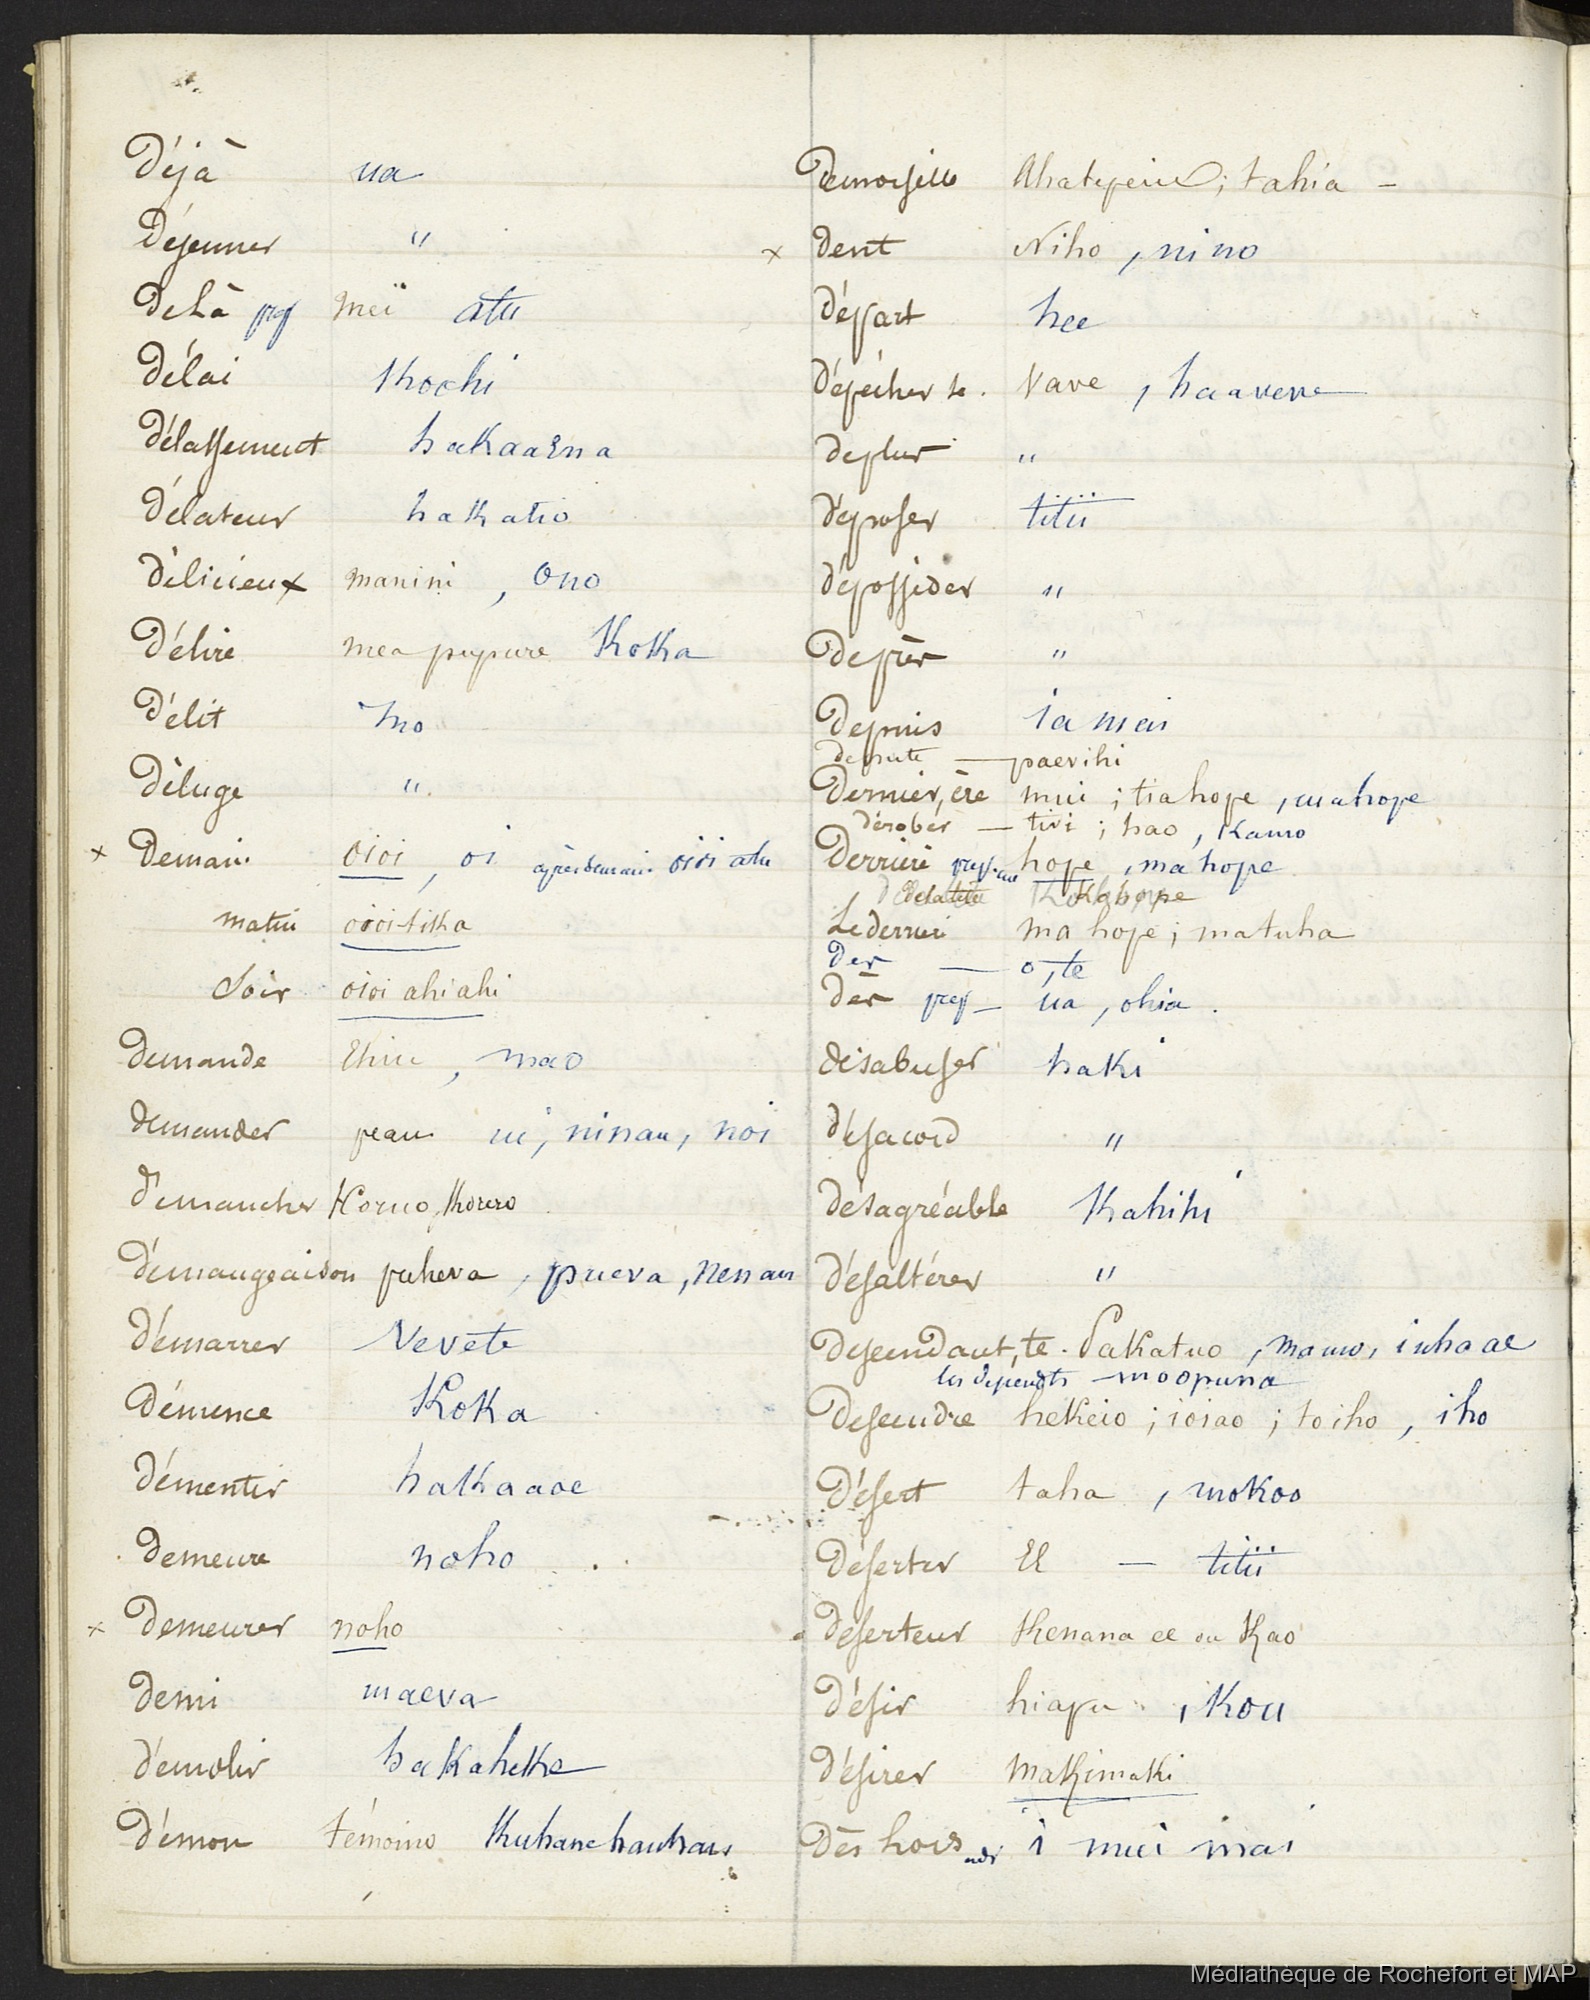 Déjà ua
Déjeuner "
Delà prep meï atu
Délai Kochi
Délassement hakaaEna
Délateur hakatio
Délicieux manini , ono
Délire mea pupure Koka
Délit mo
Déluge "
x Demain oioi , oi après demain oioi atu
matin oioi tika
Soir oioi ahiahi
Demande Ehiu , mao
demander peau ui, ninau, noi
Démancher Koruo, Korero
Démangeaison puheva , pueva, nenau
Démarrer Vevete
Démence Koka
Démentir hakaaoe
Demeure noho
x Demeurer noho
Demi maeva
Démolir hakaheke
Démon témoino Kuhanehauhau
Demoiselle Ahatepeiu ; tahia -
x Dent Niho , nino
Départ hee
Dépêcher se . Vave , haavevve
deplur "
Déposer titii
Dépossider "
Deprèr "
Depuis ia mai
depute — paevihi
Dernier, ère mui ; tia hope , mahope
dérober — tivi ; hao , Kamo
Derrière prep. hope , ma hope
Le dernier ma hope ; matuha
Der — o, te
dèr prep — ua , ohia .
désabuser haki
Désacord "
Désagréable Kahihi
Désaltérer "
Descendant, te . Pakatuo , mamo, inhoae
les dependts — moopuna
Descendre hekeio ; ioiao ; toiho , iho
Désert taha , mokoo
Déserter EE — titii
Déserteur Kenana ee ou Kao
Désir hiapu , Kou
Désirer makimaki
Dès hors adv i mui mai
Médiathèque de Rochefort et MAP